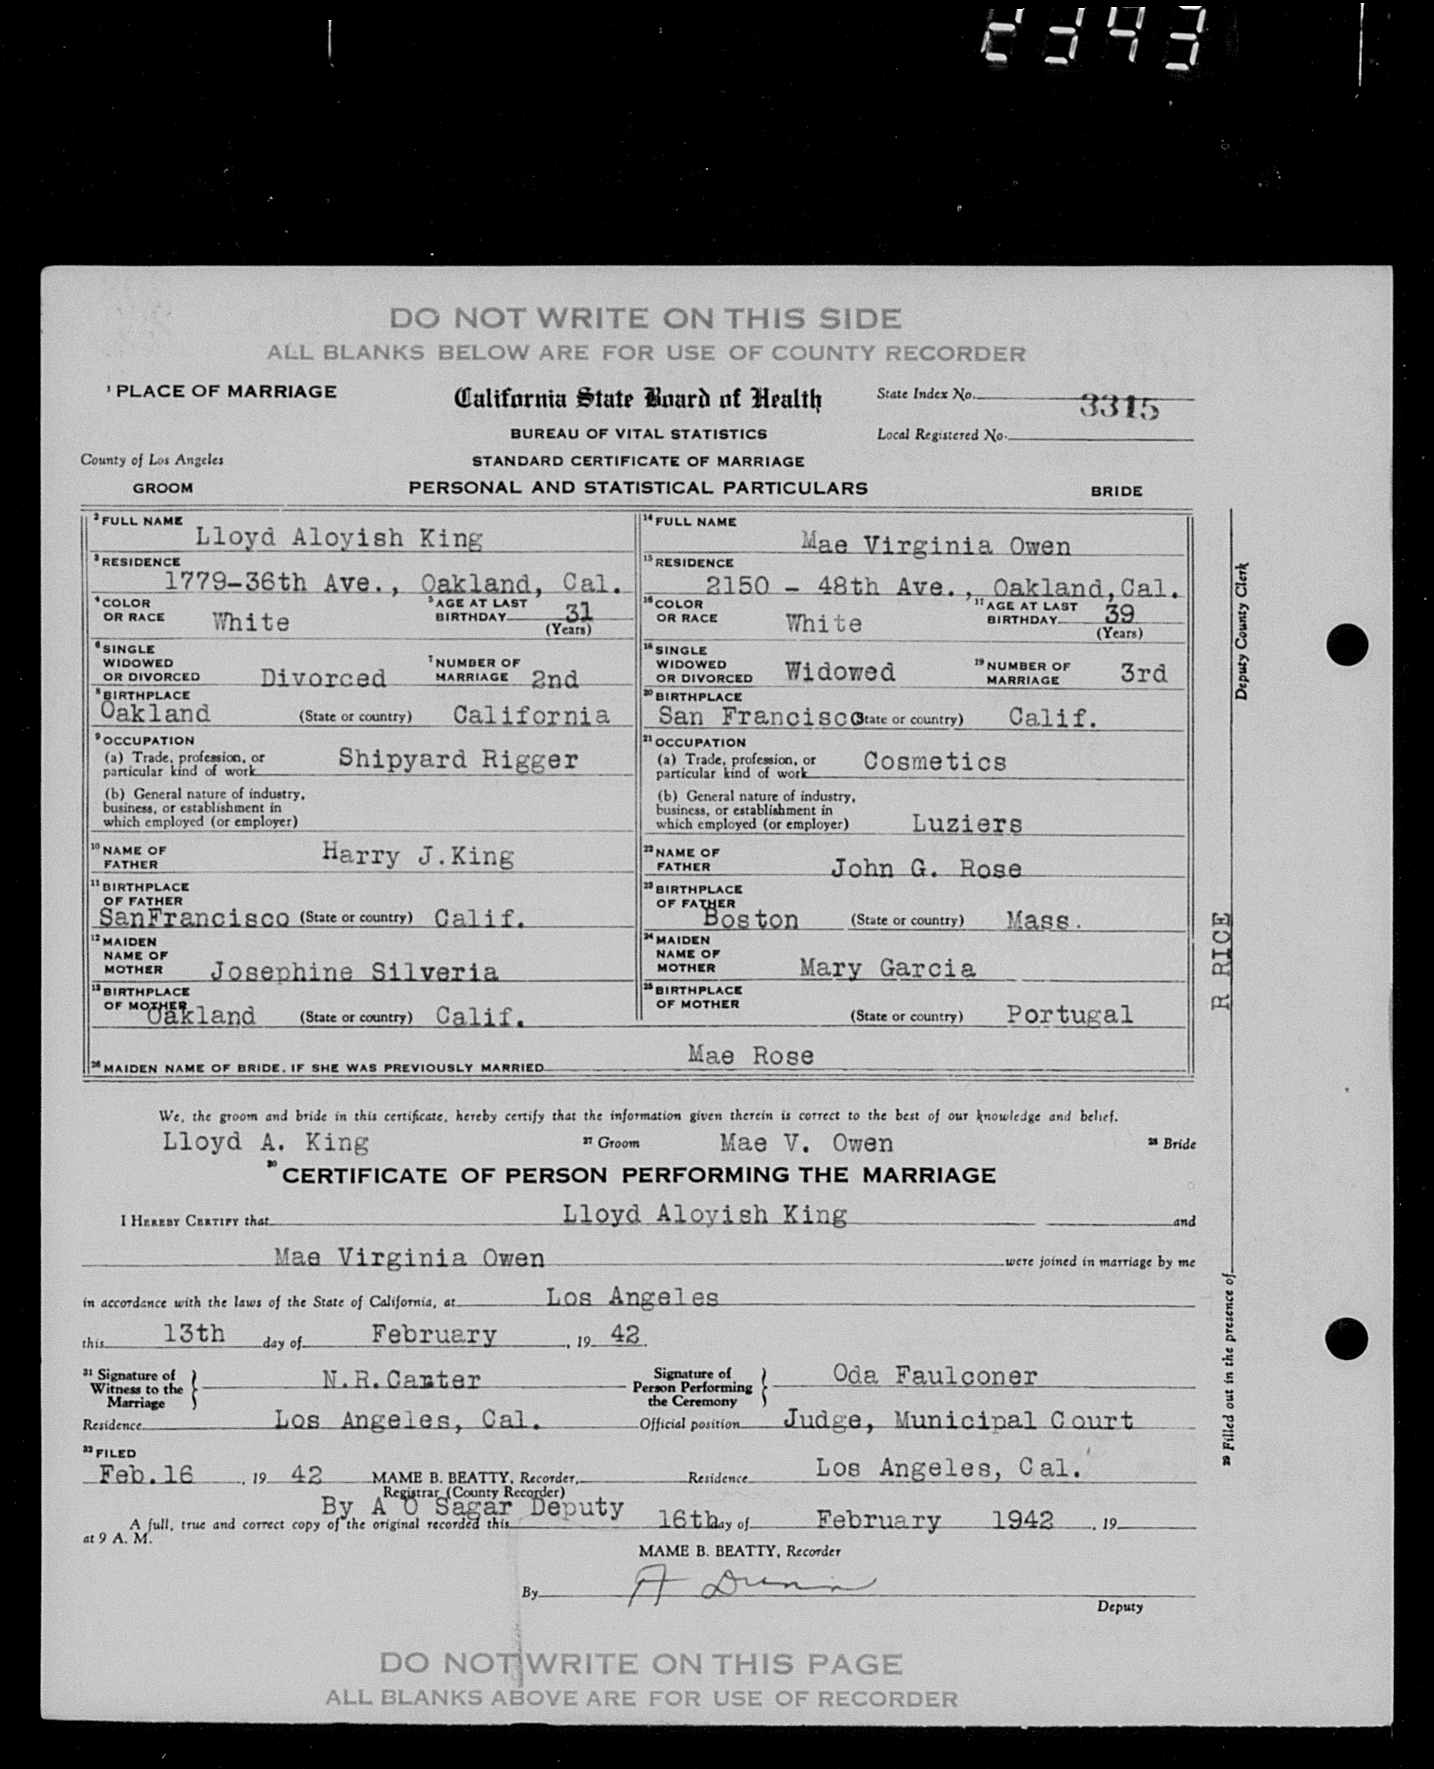 DO NOT WRITE ON THIS SIDE
ALL BLANKS BELOW ARE FOR USE OF COUNTY RECORDER
1 PLACE OF MARRIAGE
California State Board of Health
State Index No. 3315
BUREAU OF VITAL STATISTICS
Local Registered No.
County of Los Angeles
STANDARD CERTIFICATE OF MARRIAGE
GROOM
PERSONAL AND STATISTICAL PARTICULARS
BRIDE
2 FULL NAME Lloyd Aloyish King
3 RESIDENCE
1779-36th Ave., Oakland, Cal.
4 COLOR OR RACE White
5 AGE AT LAST BIRTHDAY 31 (Years)
6 SINGLE WIDOWED OR DIVORCED Divorced
7 NUMBER OF MARRIAGE 2nd
8 BIRTHPLACE
Oakland (State or country) California
9 OCCUPATION
(a) Trade, profession, or particular kind of work Shipyard Rigger
(b) General nature of industry, business, or establishment in which employed (or employer)
10 NAME OF FATHER Harry J.King
11 BIRTHPLACE OF FATHER
SanFrancisco (State or country) Calif.
12 MAIDEN NAME OF MOTHER Josephine Silveria
13 BIRTHPLACE OF MOTHER
Oakland (State or country) Calif.
14 FULL NAME
Mae Virginia Owen
15 RESIDENCE
2150 - 48th Ave., Oakland,Cal.
16 COLOR OR RACE White
17 AGE AT LAST BIRTHDAY 39 (Years)
18 SINGLE WIDOWED OR DIVORCED Widowed
19 NUMBER OF MARRIAGE 3rd
20 BIRTHPLACE
San Francisco (State or country) Calif.
21 OCCUPATION
(a) Trade, profession, or particular kind of work Cosmetics
(b) General nature of industry, business, or establishment in which employed (or employer) Luziers
22 NAME OF FATHER John G. Rose
23 BIRTHPLACE OF FATHER
Boston (State or country) Mass.
24 MAIDEN NAME OF MOTHER Mary Garcia
25 BIRTHPLACE OF MOTHER
(State or country) Portugal
26 MAIDEN NAME OF BRIDE, IF SHE WAS PREVIOUSLY MARRIED Mae Rose
We, the groom and bride in this certificate, hereby certify that the information given therein is correct to the best of our knowledge and belief.
Lloyd A. King 27 Groom Mae V. Owen 28 Bride
30 CERTIFICATE OF PERSON PERFORMING THE MARRIAGE
I HEREBY CERTIFY that Lloyd Aloyish King and
Mae Virginia Owen were joined in marriage by me
in accordance with the laws of the State of California, at Los Angeles
this 13th day of February, 19 42.
31 Signature of Witness to the Marriage N.R.Canter
Signature of Person Performing the Ceremony Oda Faulconer
Residence Los Angeles, Cal.
Official position Judge, Municipal Court
32 FILED
Feb.16, 19 42 MAME B. BEATTY, Recorder,
Residence Los Angeles, Cal.
Registrar (County Recorder)
By A O Sagar Deputy
A full, true and correct copy of the original recorded this 16th day of February 1942, 19
at 9 A. M.
MAME B. BEATTY, Recorder
By
Deputy
DO NOT WRITE ON THIS PAGE
ALL BLANKS ABOVE ARE FOR USE OF RECORDER
29 Filled out in the presence of R RICE Deputy County Clerk